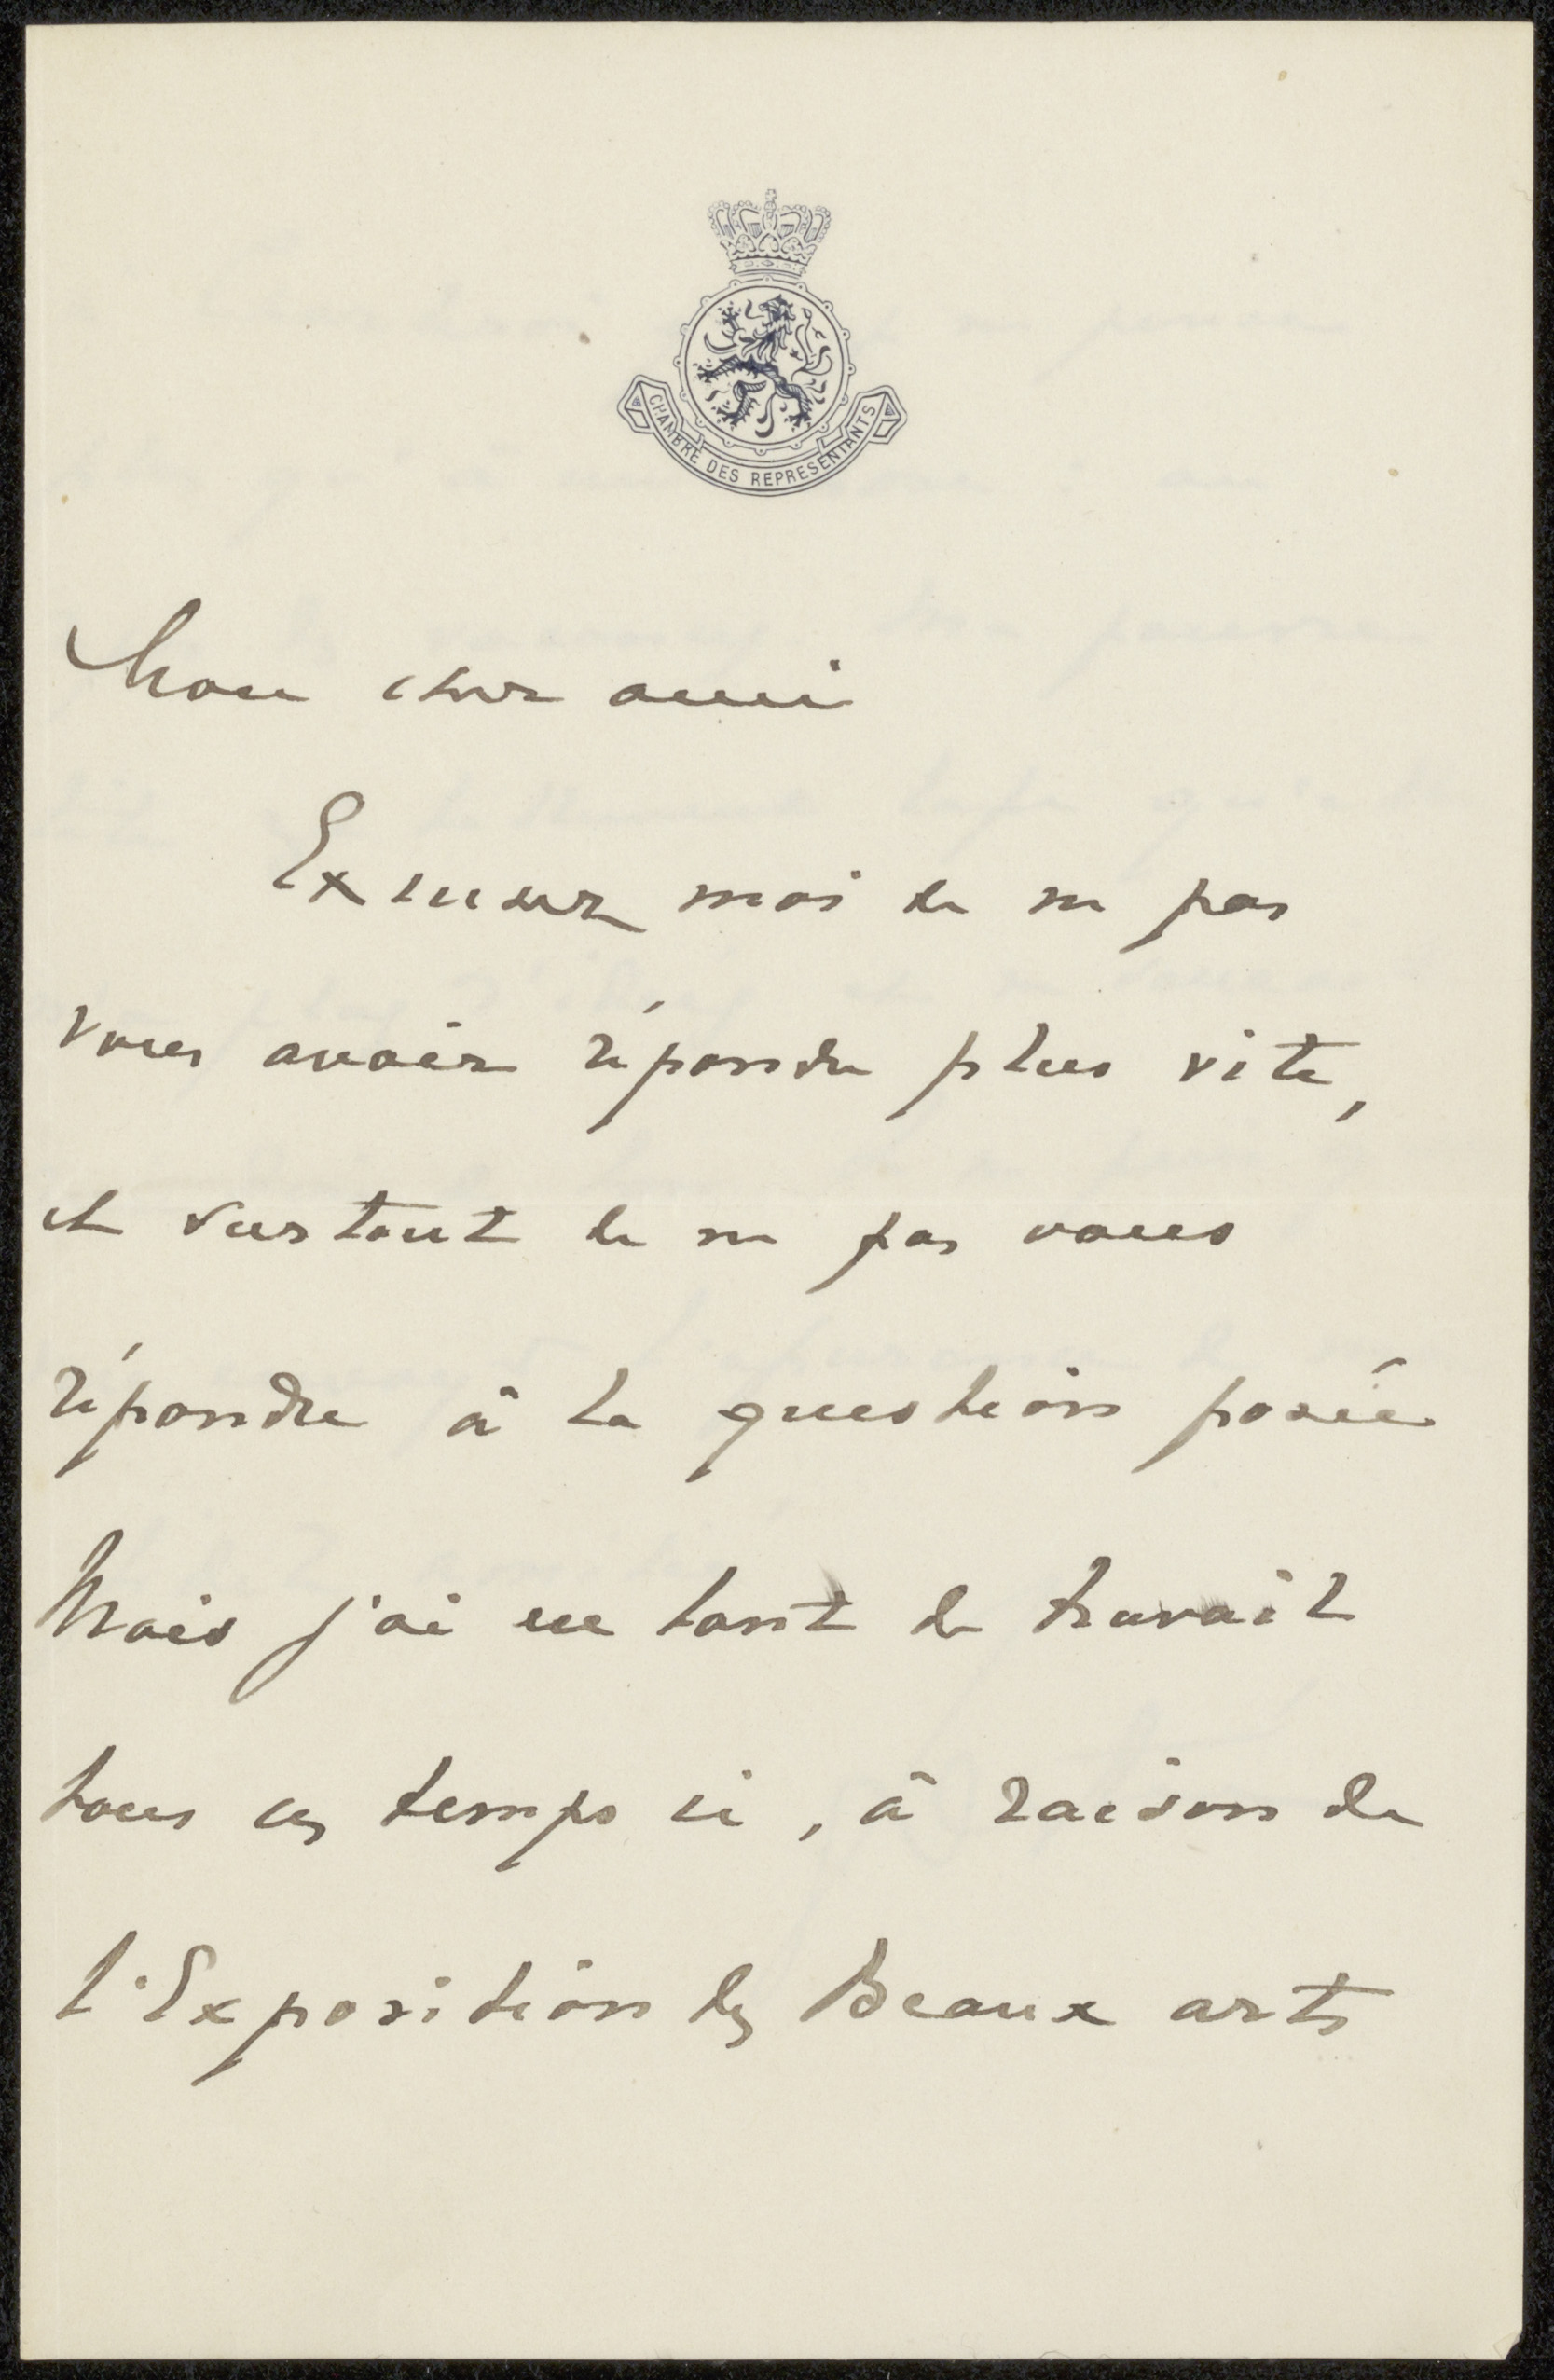 CHAMBRE DES REPRESENTANTS
Mon cher ami
Excusez moi de ne pas
vous avoir répondu plus vite,
et surtout de ne pas vous
répondre à la question posée
Mais j'ai eu tant de travail
tous ces temps ci, à raison de
l'Exposition des Beaux arts